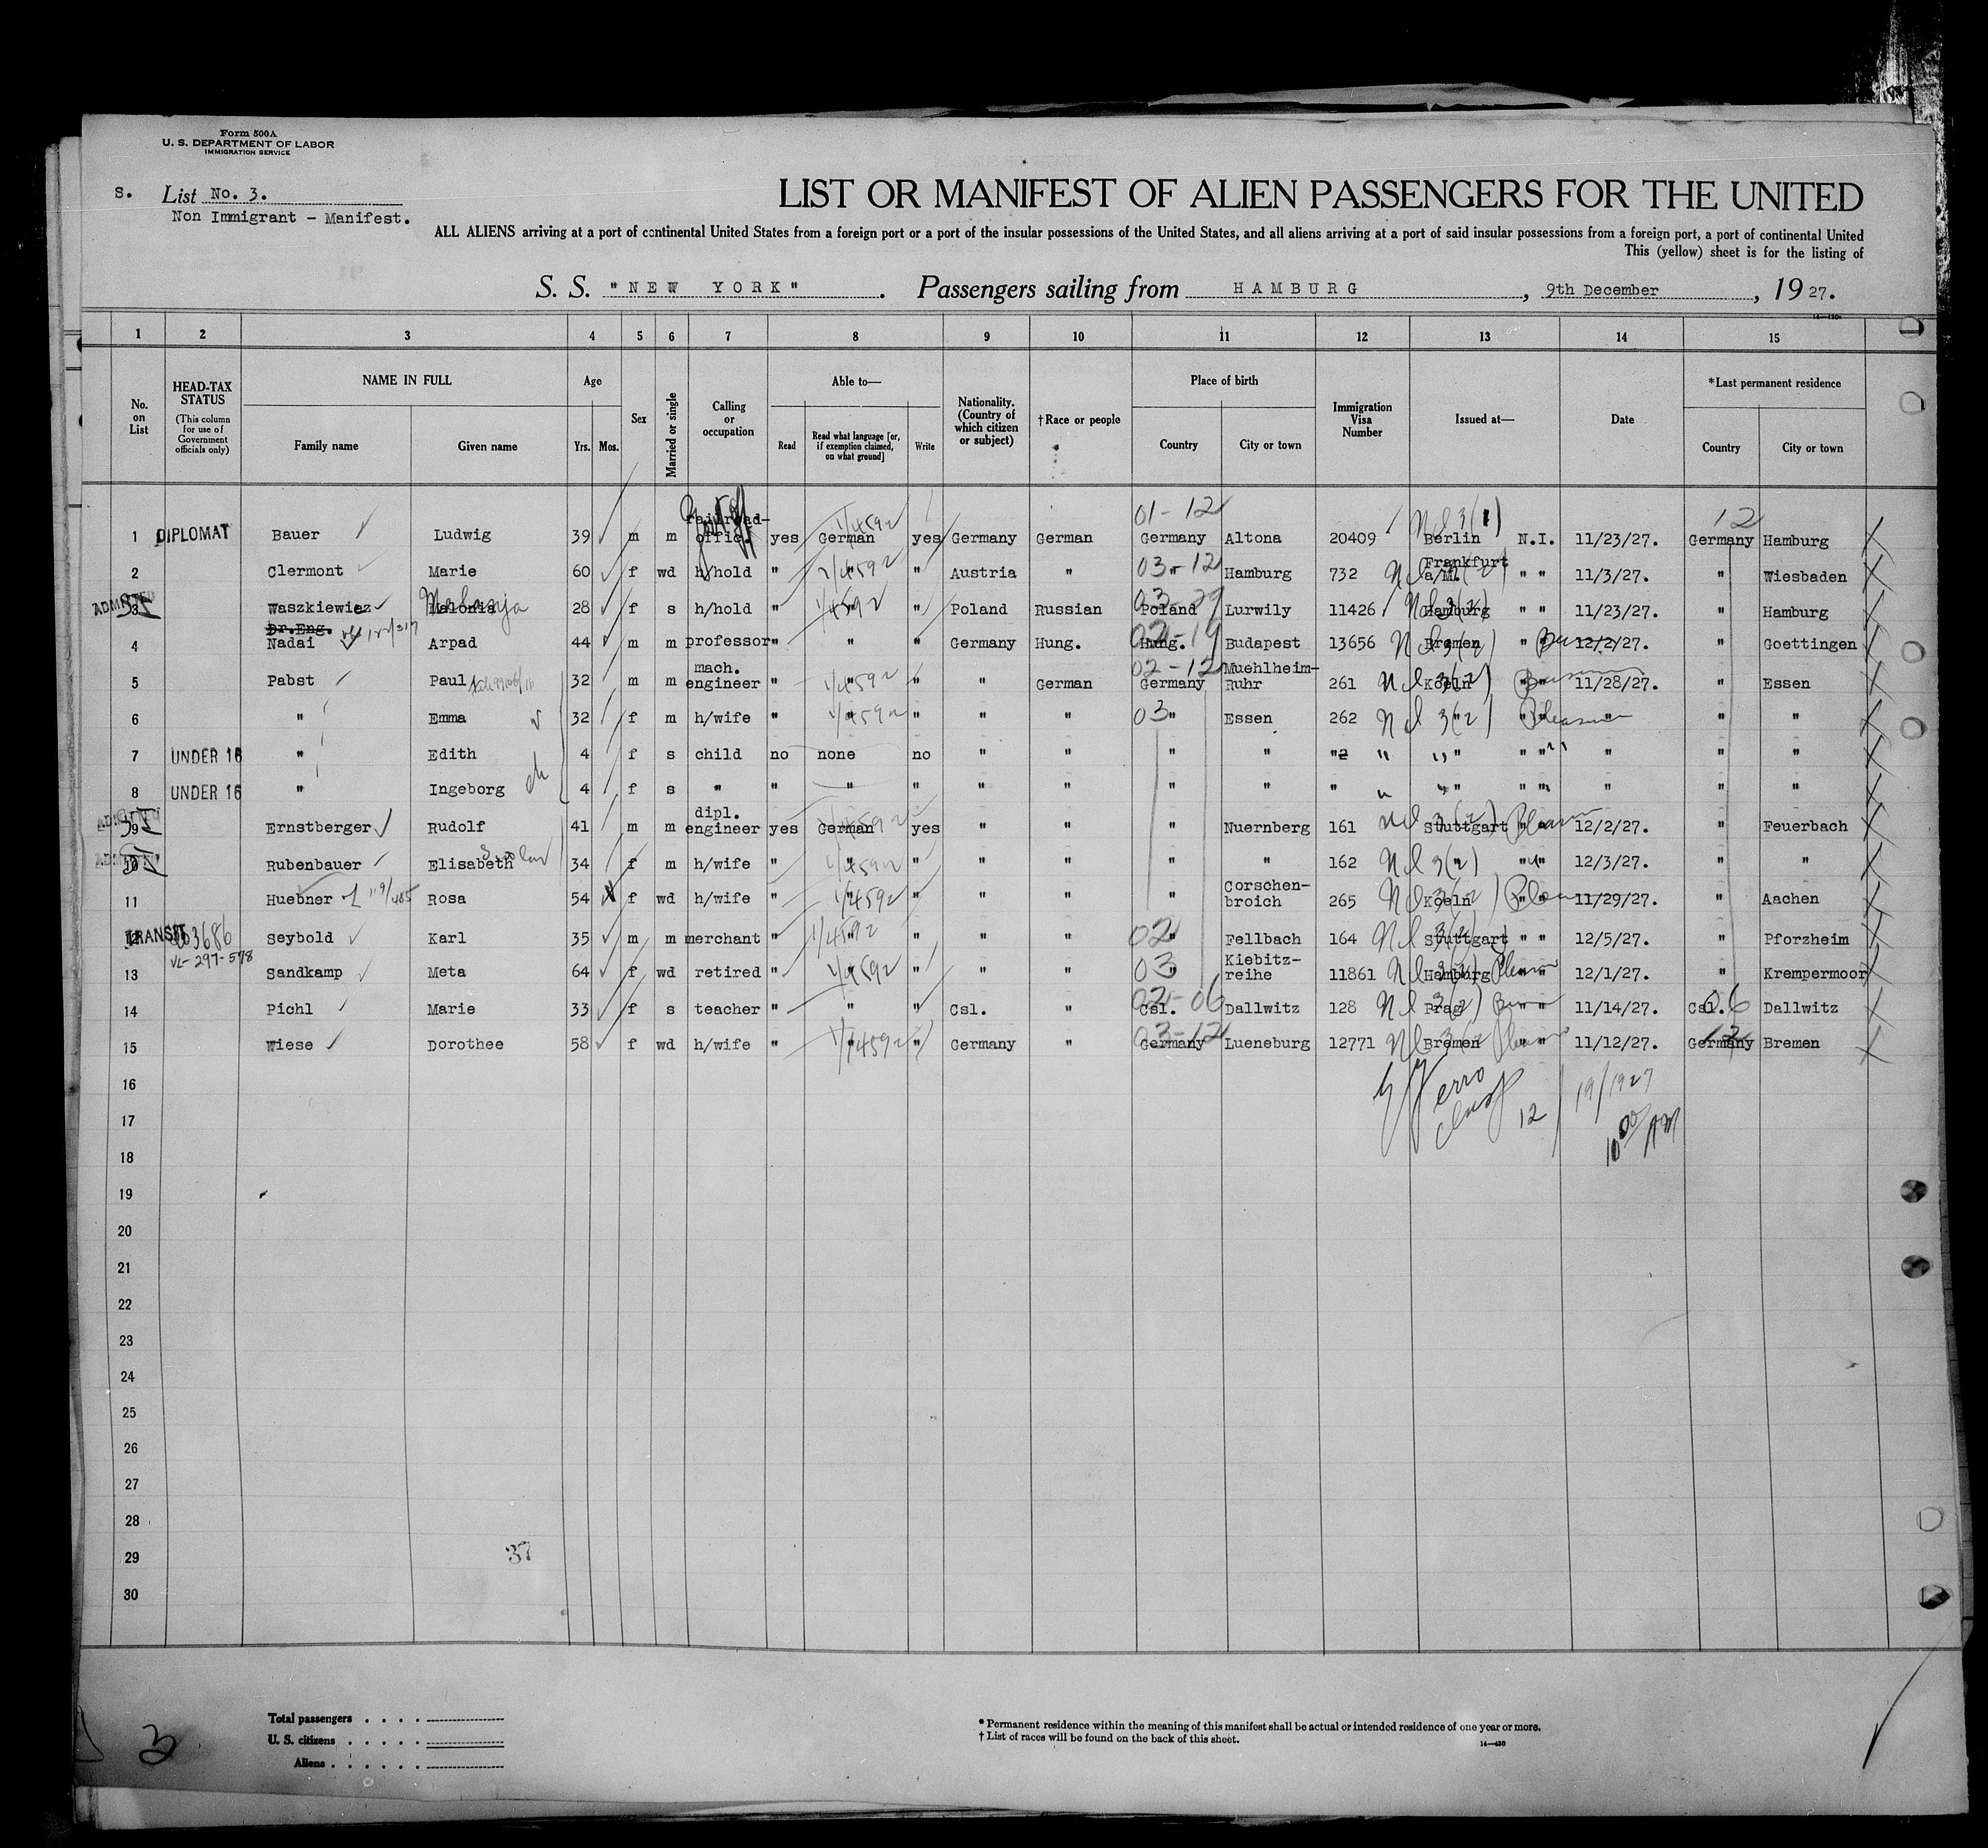 Form 500A
U. S. DEPARTMENT OF LABOR
IMMIGRATION SERVICE
S. List No. 3.
Non Immigrant - Manifest.
LIST OR MANIFEST OF ALIEN PASSENGERS FOR THE UNITED
ALL ALIENS arriving at a port of continental United States from a foreign port or a port of the insular possessions of the United States, and all aliens arriving at a port of said insular possessions from a foreign port, a port of continental United
This (yellow) sheet is for the listing of
S. S. "NEW YORK". Passengers sailing from HAMBURG, 9th December, 1927.
14—430
1 2 3 4 5 6 7 8 9 10 11 12 13 14 15
No. on List
HEAD-TAX STATUS (This column for use of Government officials only)
NAME IN FULL Family name Given name
Age Yrs. Mos.
Sex
Married or single
Calling or occupation
Able to— Read Read what language [or, if exemption claimed, on what ground] Write
Nationality. (Country of which citizen or subject)
†Race or people
Place of birth Country City or town
Immigration Visa Number
Issued at—
Date
*Last permanent residence Country City or town
01-12 Nl 3(1) 12
1 DIPLOMAT Bauer Ludwig 39 m m railroad-offic. yes German 1/4592 yes Germany German Germany Altona 20409 Berlin N.I. 11/23/27. Germany Hamburg
2 Clermont Marie 60 f wd h/hold " " 1/4592 " Austria " 03-12 " Hamburg 732 Frankfurt a/M. " " 11/3/27. " Wiesbaden
ADMITTED 3 Waszkiewicz Malonia Malanja 28 f s h/hold " " 1/4592 " Poland Russian Poland Lurwily 11426 Hamburg " " 11/23/27. " Hamburg
Dr.Eng.
4 Nadai Arpad 44 m m professor " " " Germany Hung. Hung. Budapest 13656 Bremen " 12/2/27. " Goettingen
5 Pabst Paul 32 m m mach. engineer " " 1/4592 " " German 02-12 Germany Muehlheim-Ruhr 261 Koeln " " 11/28/27. " Essen
6 " Emma 32 f m h/wife " " 1/4592 " " " 03 " Essen 262 Nl 3(2) " " Pleasure " " "
7 UNDER 16 " Edith 4 f s child no none no " " " " " " " " " " " "
8 UNDER 16 " Ingeborg 4 f s " " " " " " " " " " " " " " "
ADMITTED 9 Ernstberger Rudolf 41 m m dipl. engineer yes German yes " " " Nuernberg 161 Stuttgart " 12/2/27. " Feuerbach
ADMITTED 10 Rubenbauer Elisabeth 34 f m h/wife " " 1/4592 " " " " " 162 Nl 3(2) " " 12/3/27. " "
11 Huebner Rosa 54 f wd h/wife " " 1/4592 " " " " Corschen-broich 265 Koeln " " 11/29/27. " Aachen
12 TRANSIT Seybold Karl 35 m m merchant " " 1/4592 " " " 02 " Fellbach 164 Stuttgart " " 12/5/27. " Pforzheim
13 Sandkamp Meta 64 f wd retired " " 1/4592 " " " 03 " Kiebitz-reihe 11861 Hamburg " " 12/1/27. " Krempermoor
14 Pichl Marie 33 f s teacher " " " Csl. " Csl. Dallwitz 128 Prag " " 11/14/27. Csl. Dallwitz
15 Wiese Dorothee 58 f wd h/wife " " 1/4592 " Germany " 03-12 Germany Lueneburg 12771 Bremen " " 11/12/27. Germany Bremen
16
17 12/19/1927
18 10 00 AM
19
20
21
22
23
24
25
26
27
28
29
37
30
3
Total passengers
U. S. citizens
Aliens
* Permanent residence within the meaning of this manifest shall be actual or intended residence of one year or more.
† List of races will be found on the back of this sheet.
14—430